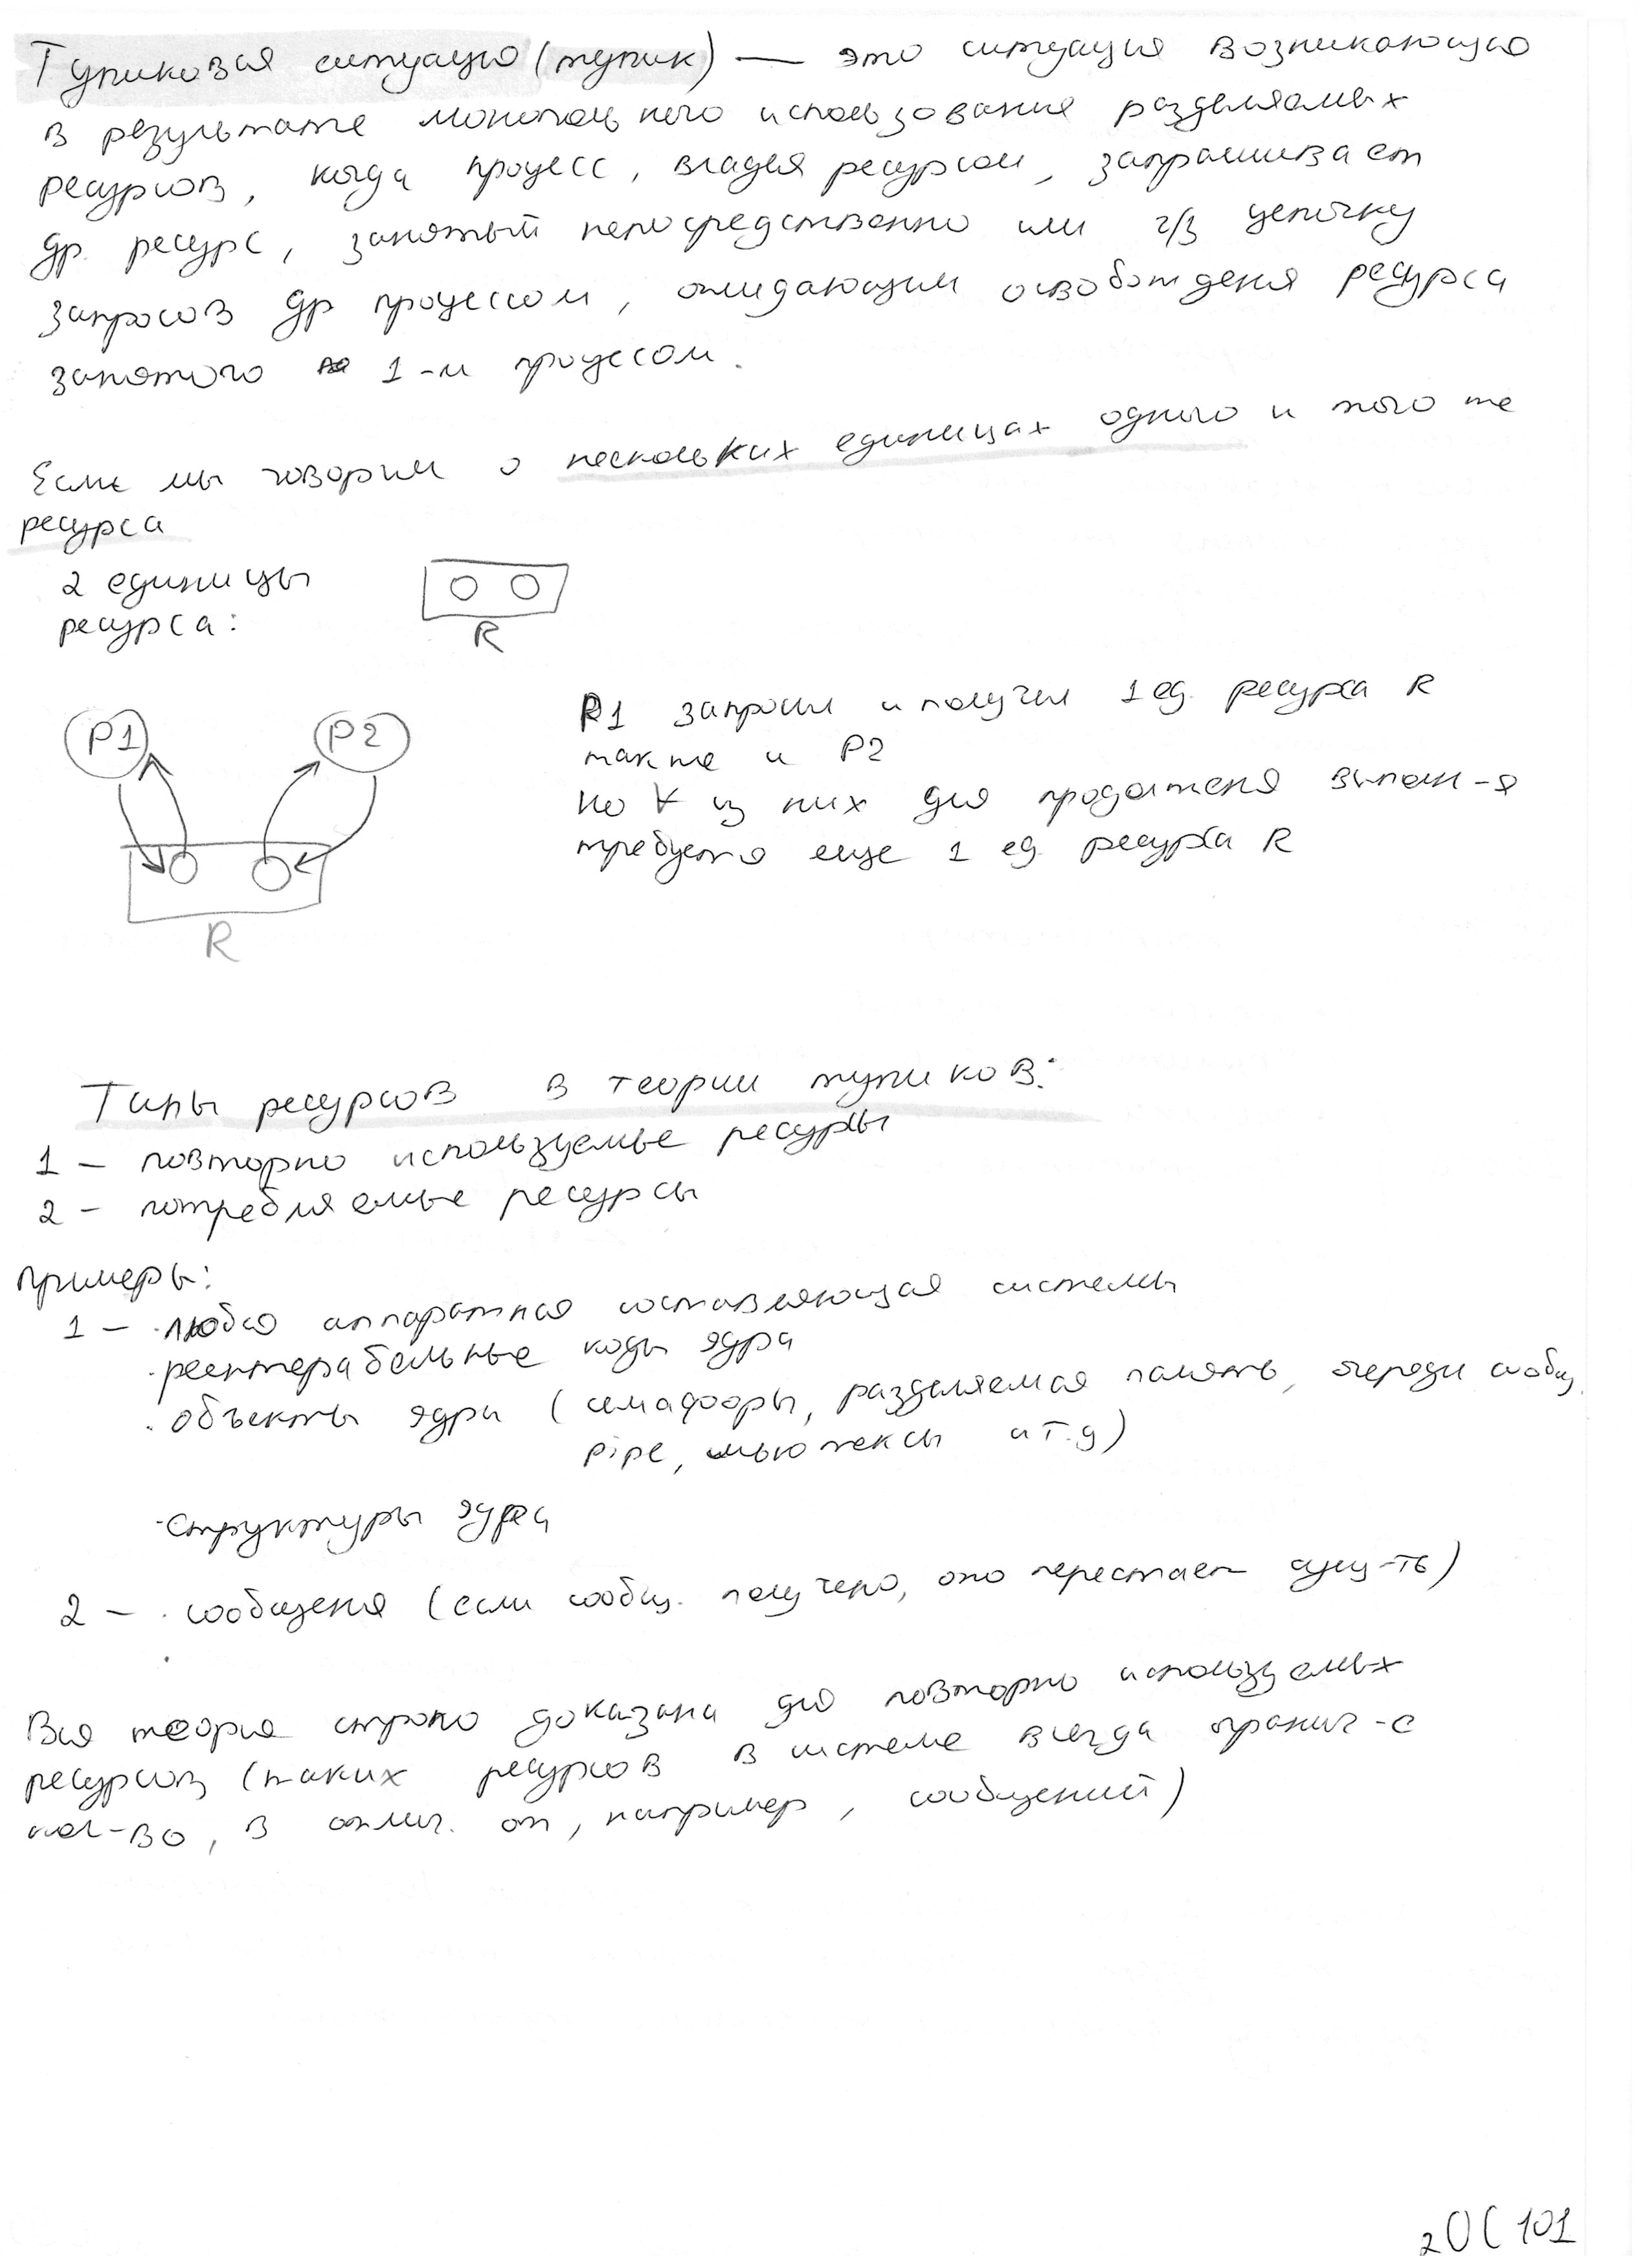 Тупиковая ситуация (тупик) — это ситуация возникающая
в результате монопольного использования разделяемых
ресурсов, когда процесс, владея ресурсом, запрашивает
др. ресурс, занятый непосредственно или ч/з цепочку
запросов др процессом, ожидающим освобождения ресурса
занятого 1-м процессом.
Если мы говорим о нескольких единицах одного и того же
ресурса
2 единицы
ресурса:
R
P1 P2
R
P1 запросил и получил 1 ед. ресурса R
также и P2
Но ∀ из них для продолжения выполн-я
требуется еще 1 ед. ресурса R
Типы ресурсов в теории тупиков:
1 – повторно используемые ресурсы
2 – потребляемые ресурсы
Примеры:
1 – · любая аппаратная составляющая системы
· реентерабельные коды ядра
· объекты ядра (семафоры, разделяемая память, очереди сообщ.
pipe, мьютексы и т.д)
· структуры ядра
2 – · сообщения (если сообщ. получено, оно перестает сущ-ть)
·
Вся теория строго доказана для повторно используемых
ресурсов (таких ресурсов в системе всегда огранич-е
кол-во, в отлич. от, например, сообщений)
2ОС 101